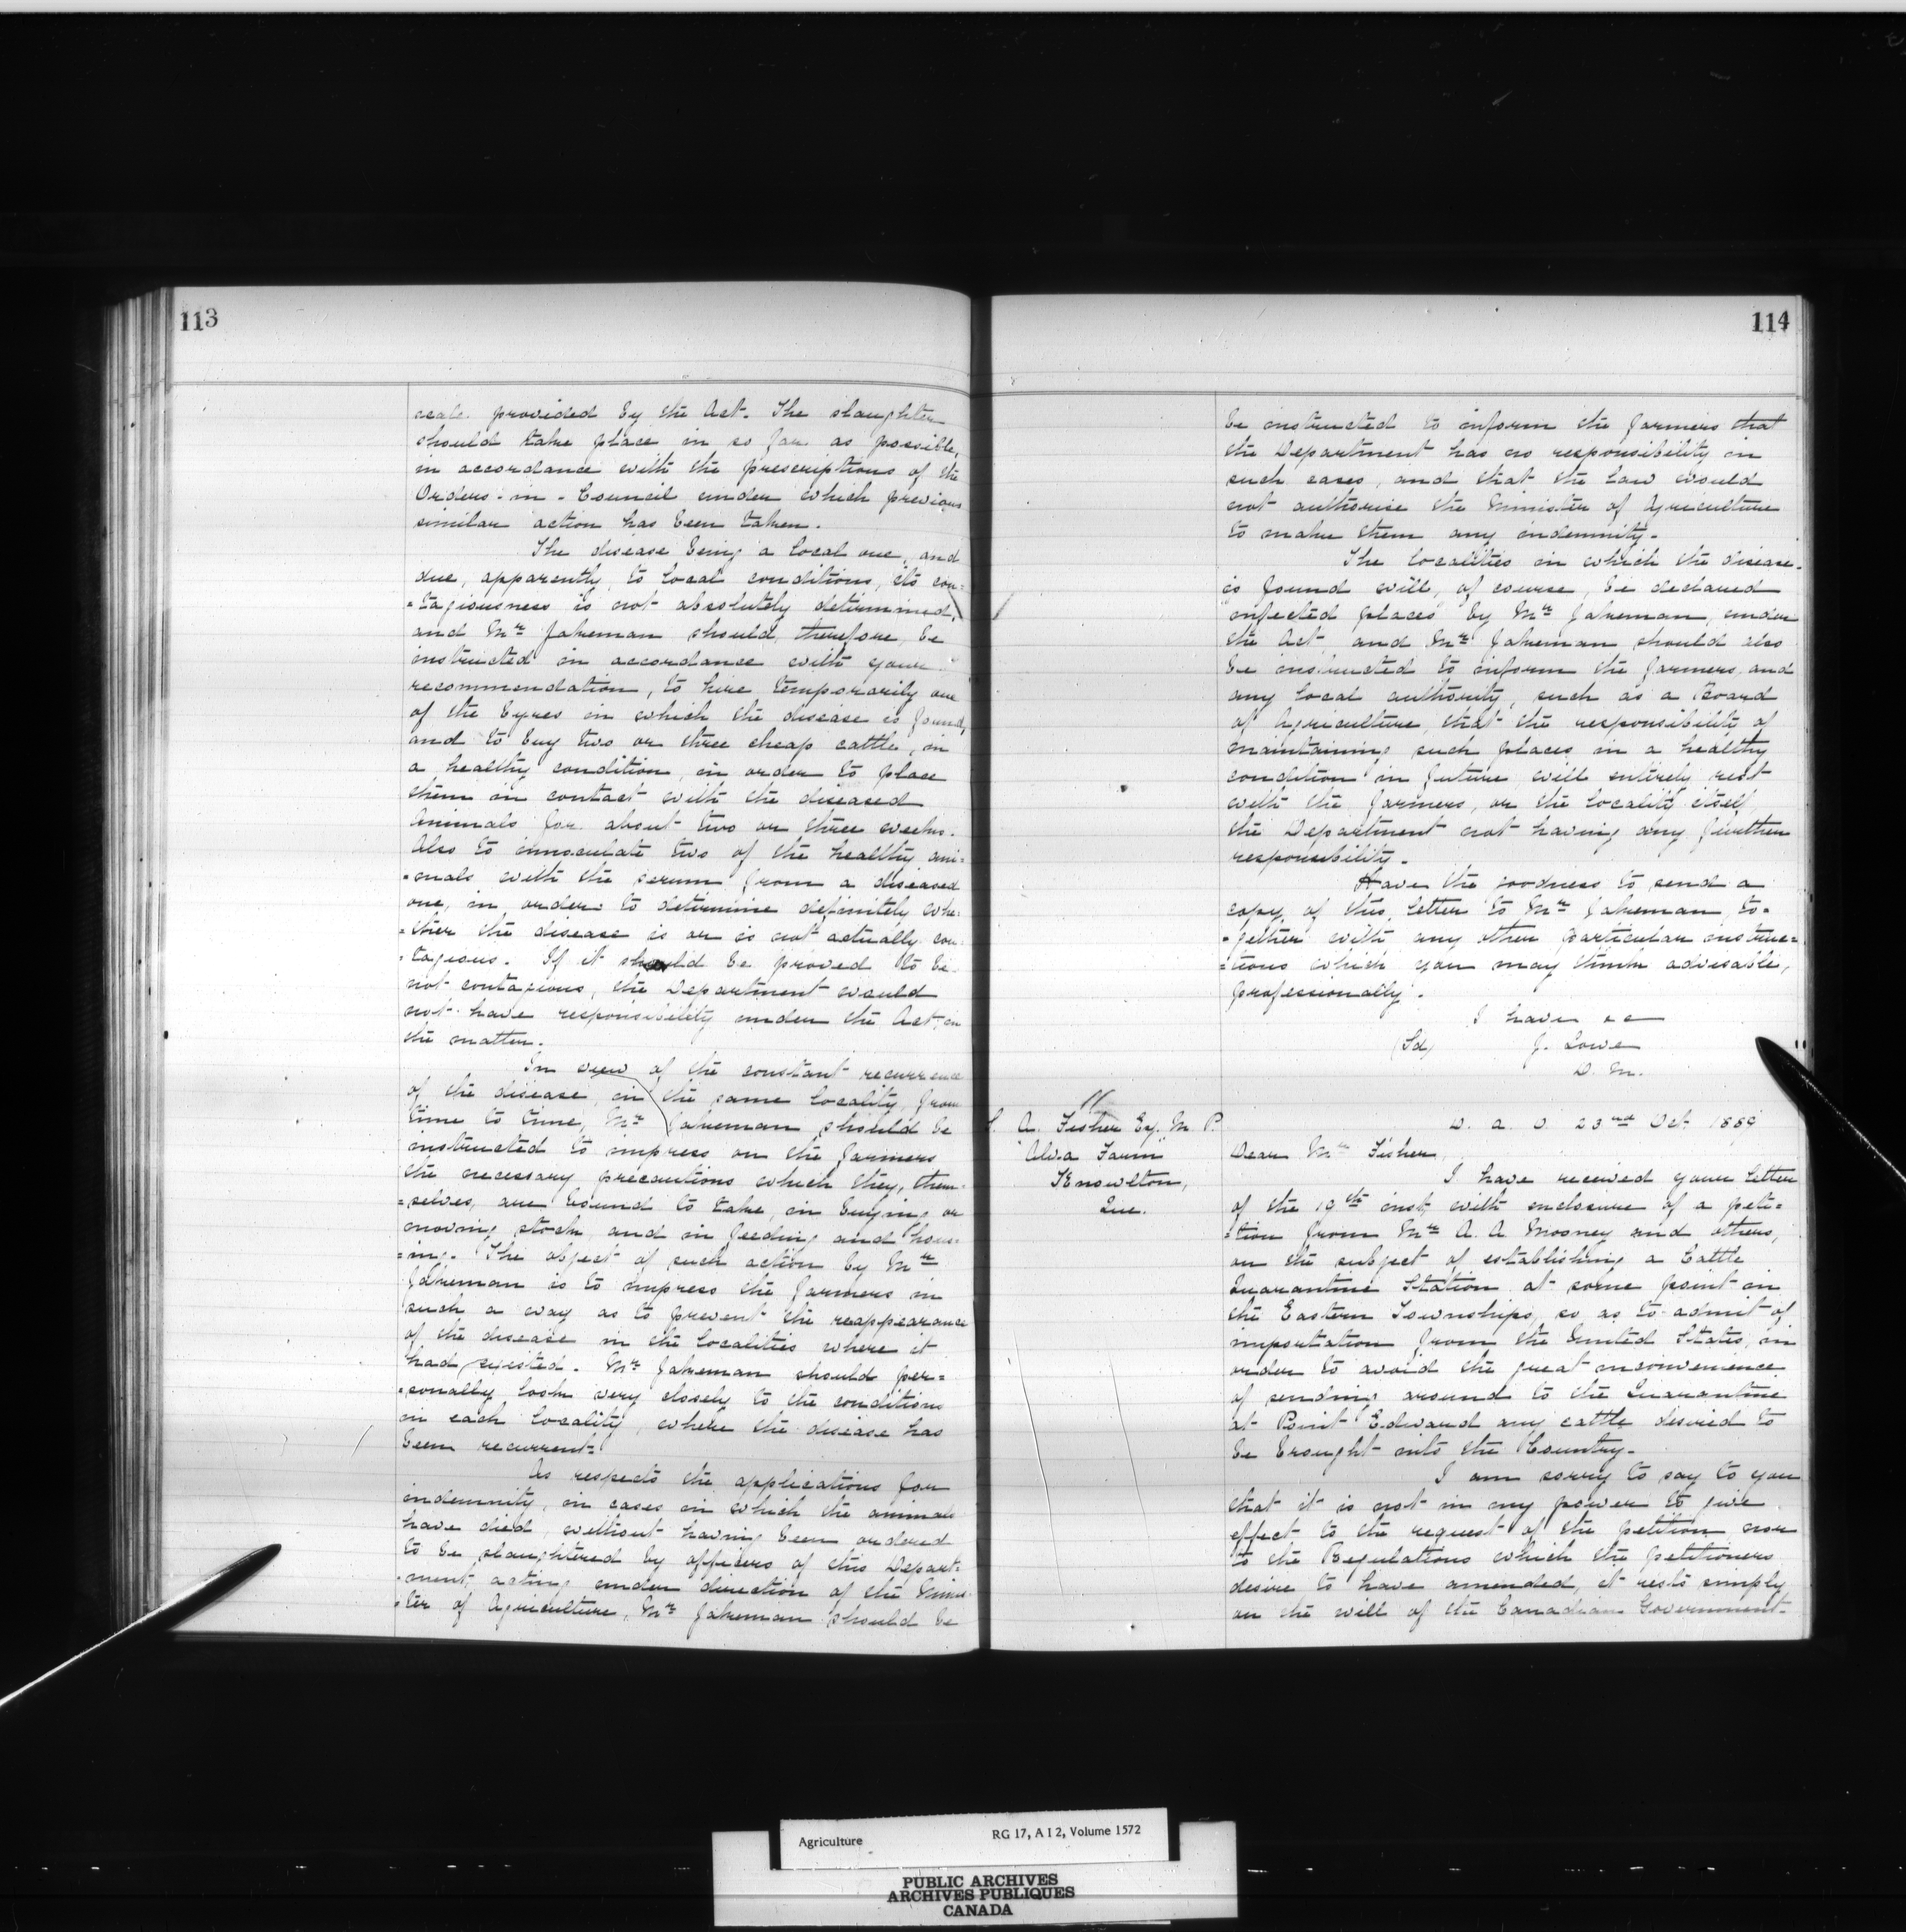 113
scale provided by the Act. The slaughter
should take place in so far as possible,
in accordance with the prescriptions of the
Orders-in-Council under which previous
similar action has been taken.
The disease being a local one, and
due, apparently, to local conditions, its con=
=tagiousness is not absolutely determined,
and Mr Jakeman should, therefore, be
instructed in accordance with your
recommendation, to hire temporarily one
of the byres in which the disease is found,
and to buy two or three cheap cattle, in
a healthy condition, in order to place
them in contact with the diseased
animals for about two or three weeks.
Also to innoculate two of the healthy ani=
=mals with the serum from a diseased
one, in order to determine definitely whe=
=ther the disease is or is not actually con=
=tagious. If it should be proved to be
not contagious, the Department would
not have responsibility under the Act in
the matter.
In view of the constant recurrence
of the disease, in the same locality, from
time to time, Mr Jakeman should be
instructed to impress on the farmers
the necessary precautions which they, them=
=selves, are bound to take, in buying or
moving stock, and in feeding and hous=
=ing. The object of such action by Mr
Jakeman is to impress the farmers in
such a way as to prevent the reappearance
of the disease in the localities where it
had existed. Mr Jakeman should per=
=sonally look very closely to the conditions
in each locality, where the disease has
been recurrent.
As respects the applications for
indemnity, in cases in which the animals
have died, without having been ordered
to be slaughtered by officers of this Depart=
=ment, acting under direction of the Minis=
=ter of Agriculture, Mr Jakeman should be
114
be instructed to inform the farmers that
the Department has no responsibility in
such cases, and that the law would
not authorise the Minister of Agriculture
to make them any indemnity.
The localities in which the disease
is found will, of course, be declared
infected places by Mr Jakeman, under
the Act, and Mr Jakeman should also
be instructed to inform the farmers and
any local authority, such as a Board
of Agriculture, that the responsibility of
maintaining such places in a healthy
condition in future will entirely rest
with the farmers, or the locality itself,
the Department not having any further
responsibility.
Have the goodness to send a
copy of this letter to Mr Jakeman, to=
=gether with any other particular instruc=
=tions which you may think advisable,
professionally.
I have &c
(Sd) J. Lowe
D. M.
S. A. Fisher Esq. M. P.
"Alva Farm"
Knowlton,
Que.
D. a. O. 23rd Oct 1889
Dear Mr Fisher,
I have received your letter
of the 19th inst, with enclosure of a peti=
=tion from Mr A. A Mooney and others,
on the subject of establishing a Cattle
Quarantine Station at some point in
the Eastern Townships, so as to admit of
importation from the United States, in
order to avoid the great inconvenience
of sending around to the Quarantine
at Point Edward any cattle desired to
be brought into the Country.
I am sorry to say to you
that it is not in my power to give
effect to the request of the petition nor
to the Regulations which the petitioners
desire to have amended, it rests simply
on the will of the Canadian Government.
Agriculture RG 17, A I 2, Volume 1572
PUBLIC ARCHIVES
ARCHIVES PUBLIQUES
CANADA